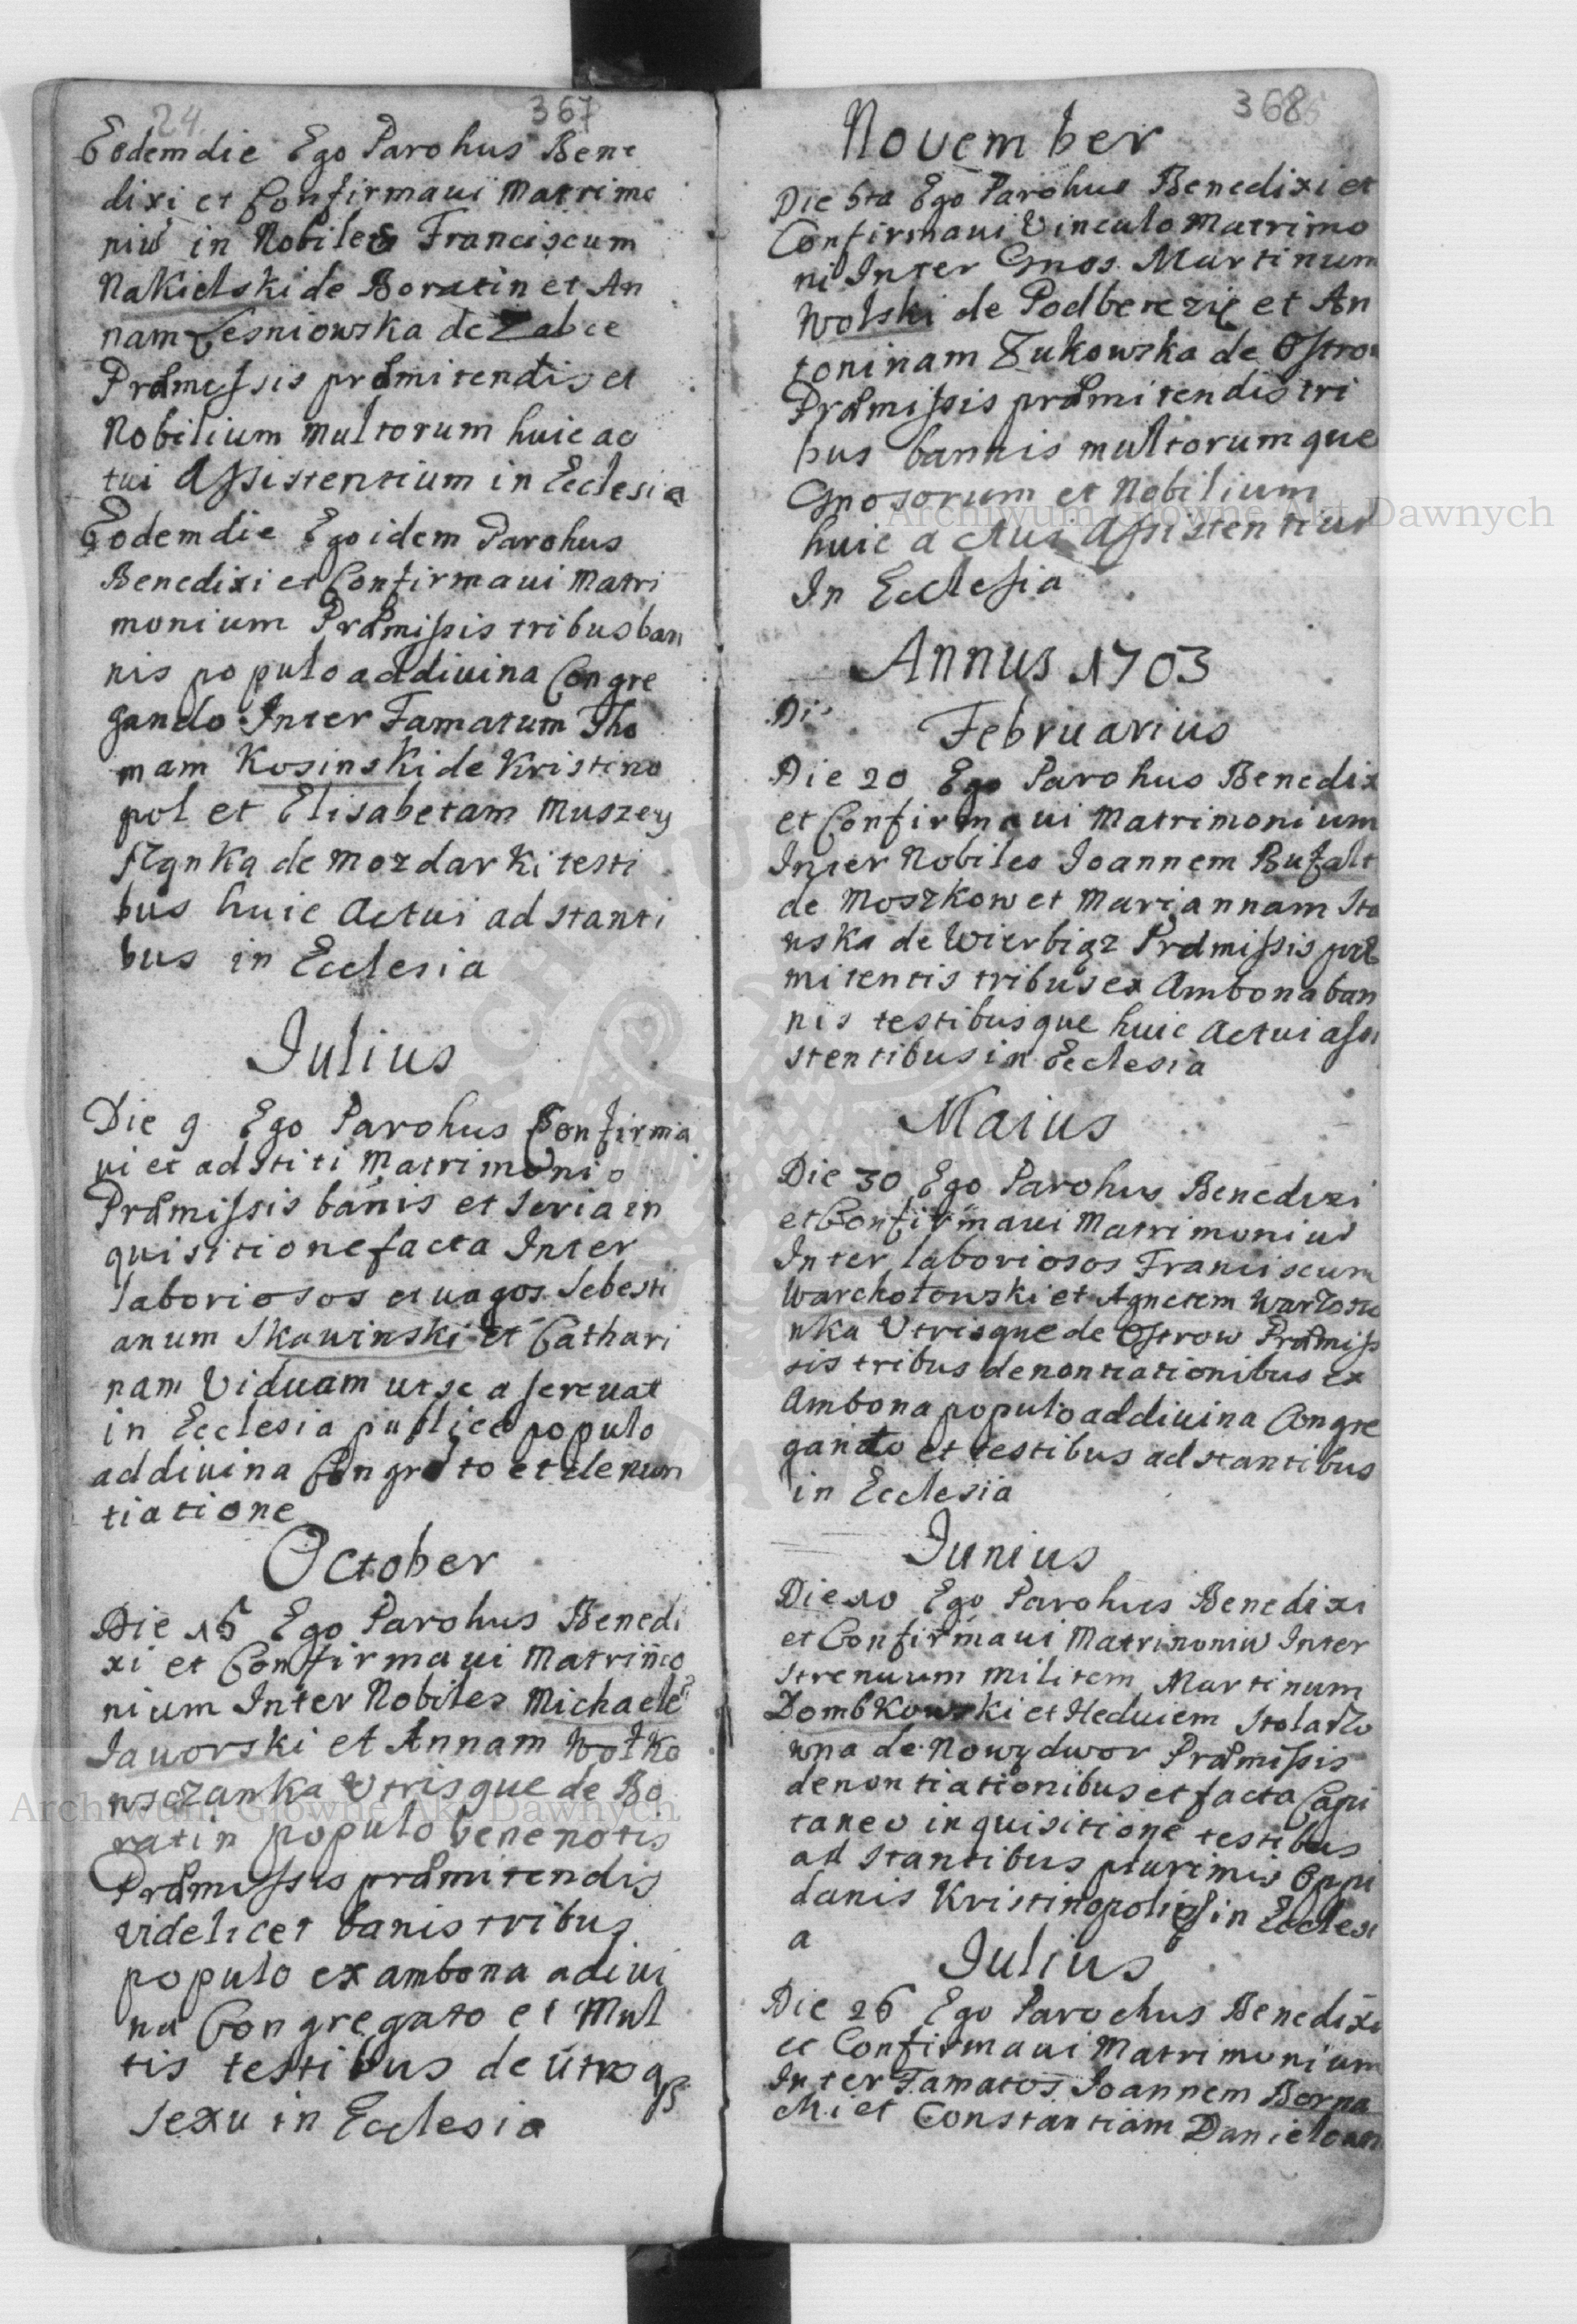 24.
367
Eodem die Ego Parohus Bene
dixi et Confirmaui Matrimo
niũ in Nobiles Franciscum
Nakielski de Boratin et An
nam Lesniowska de Zabce
Præmissis præmitendis et
Nobilium multorum huic ac
tui Assistentium in Ecclesia
Eodem die Ego idem Parohus
Benedixi et Confirmaui Matri
monium Præmissis tribus ban
nis populo ad diuina Congre
gando Inter Famatum Tho
mam Kosinski de Kristino
pol et Elisabetam Muszey
de Mozdarki testi
bus huic Actui ad stanti
bus in Ecclesia
Iulius
Die 9 Ego Parohus Confirma
ui et ad stiti Matrimonio
Præmissis banis et seria in
quisitione facta Inter
laboriosos et uagos Sebesti
anum Skawinski et Cathari
nam Viduam ut se a sereuat
in Ecclesia publice populo
ad diuina Congrato et denun
tiatione
October
Die 15 Ego Parohus Benedi
xi et Confirmaui Matrimo
nium Inter Nobiles Michaele
Iauorski et Annam Wołko
wsczanka Utrisque de Bo
ratin populo bene notis
Præmissis præmitendis
videlicet banis tribus
populo ex ambona adiui
na Congregato et Mul
tis testibus de utroqȝ
sexu in Ecclesia
368
Nouember
Die 5ta Ego Parohus Benedixi et
Confirmaui Vinculo Matrimo
ni Inter Gnos Martinum
Wolski de Podberezie et An
toninam Zukowska de Ostrow
Præmissis præmitendis tri
bus bannis multorumque
Gnosorum et Nobilium
huic actui Assistentiũ
In Ecclesia
Annus 1703
Di
Februarius
Die 20 Ego Parohus Benedix
et Confirmaui Matrimonium
Inter Nobiles Ioannem Bufałt
de Moszkow et Mariannam Sta
wska de Wierbiąz Præmissis præ
mitentis tribus ex Ambona ban
nis testibusque huic Actui assi
stentibus in Ecclesia
Maius
Die 30 Ego Parohus Benedixi
et Confirmaui Matrimoniũ
Inter laboriosos Franciscum
Warchołowski et Agnetem
Utrisque de Ostrow Præmiss
sis tribus denontiationibus ex
Ambona populo ad diuina Congre
gando et testibus ad stantibus
in Ecclesia
Iunius
Die 10 Ego Parohus Benedixi
et Confirmaui Matrimoniũ Inter
strenuum militem Martinum
Dombkowski et Heduiem Stolarzo
wna de Nowydwor Præmissis
denontiationibus et facta Capi
taneo inquisitione testibus
ad stantibus plurimis Oppi
danis Kristinopolis in Ecclesi
a
Iulius
Die 26 Ego Parochus Benedixi
et Confirmaui Matrimonium
Inter Famatos Ioannem Borna
chi et Constantiam Danielown
Archiwum Główne Akt Dawnych
Archiwum Główne Akt Dawnych